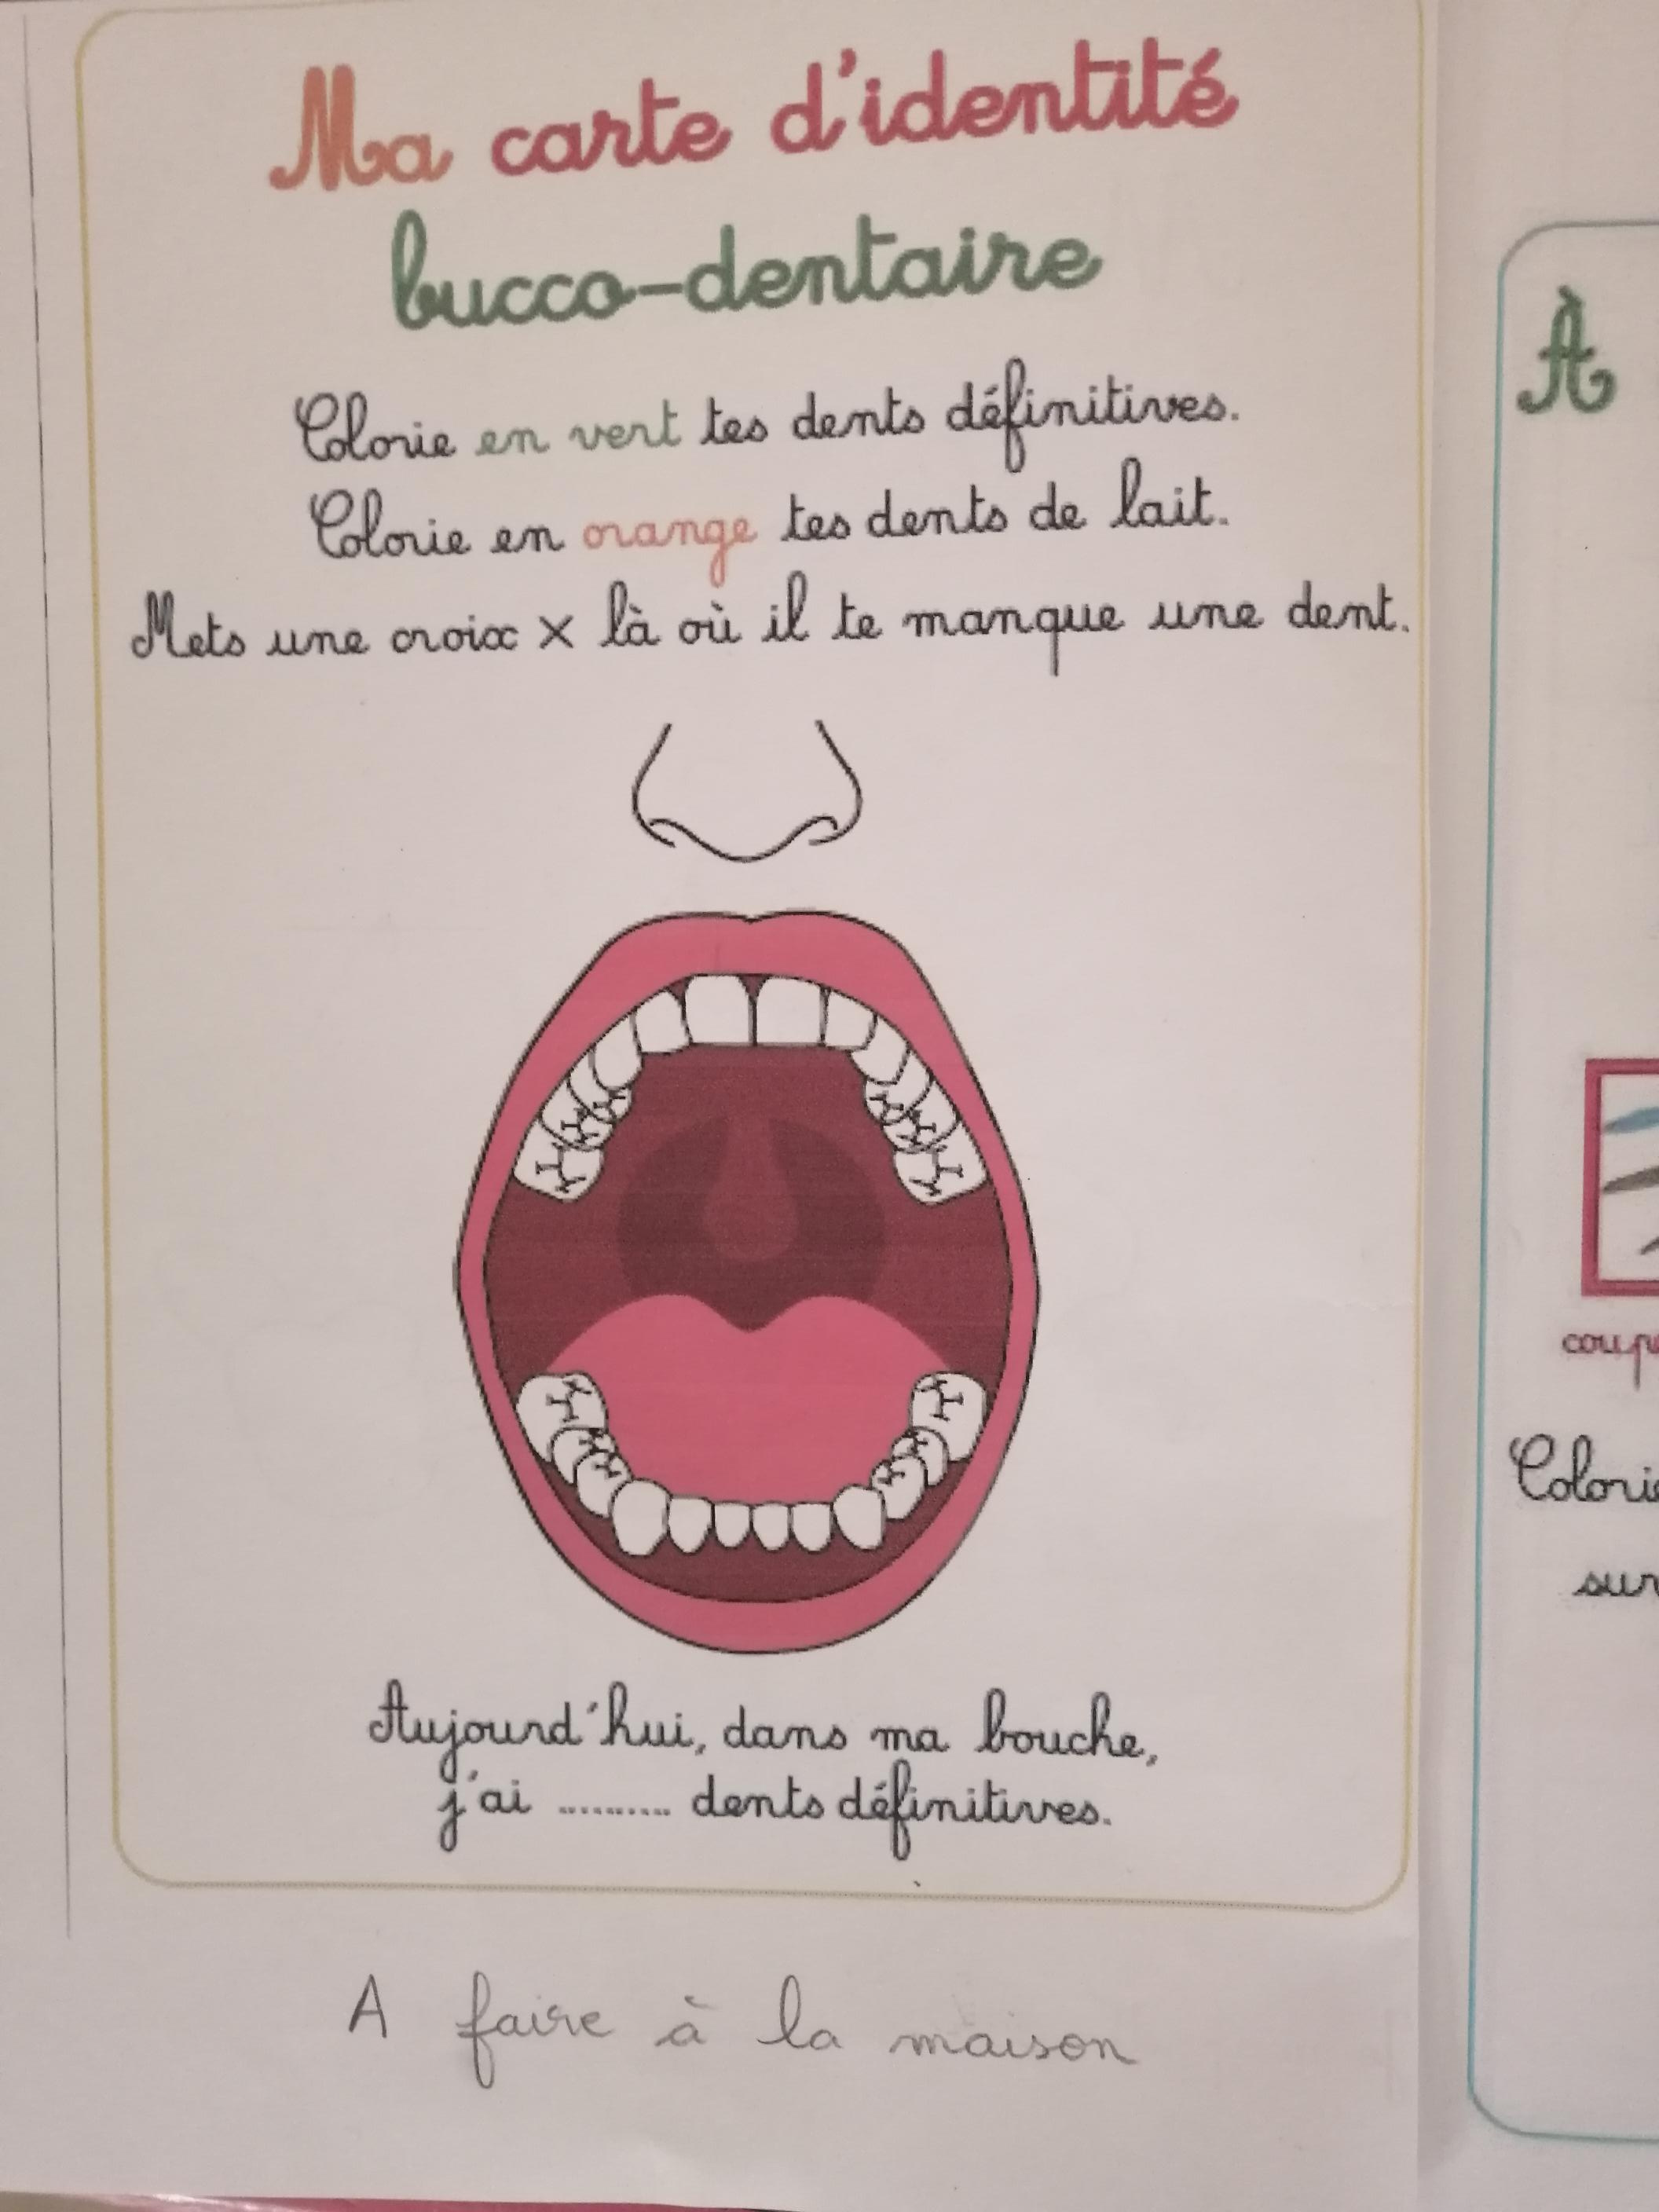 Ma carte d'identité
bucco-dentaire
Colorie en vert tes dents définitives.
Colorie en orange tes dents de lait.
Mets une croix x là où il te manque une dent.
Aujourd'hui, dans ma bouche,
j'ai .......... dents définitives.
A faire à la maison
À